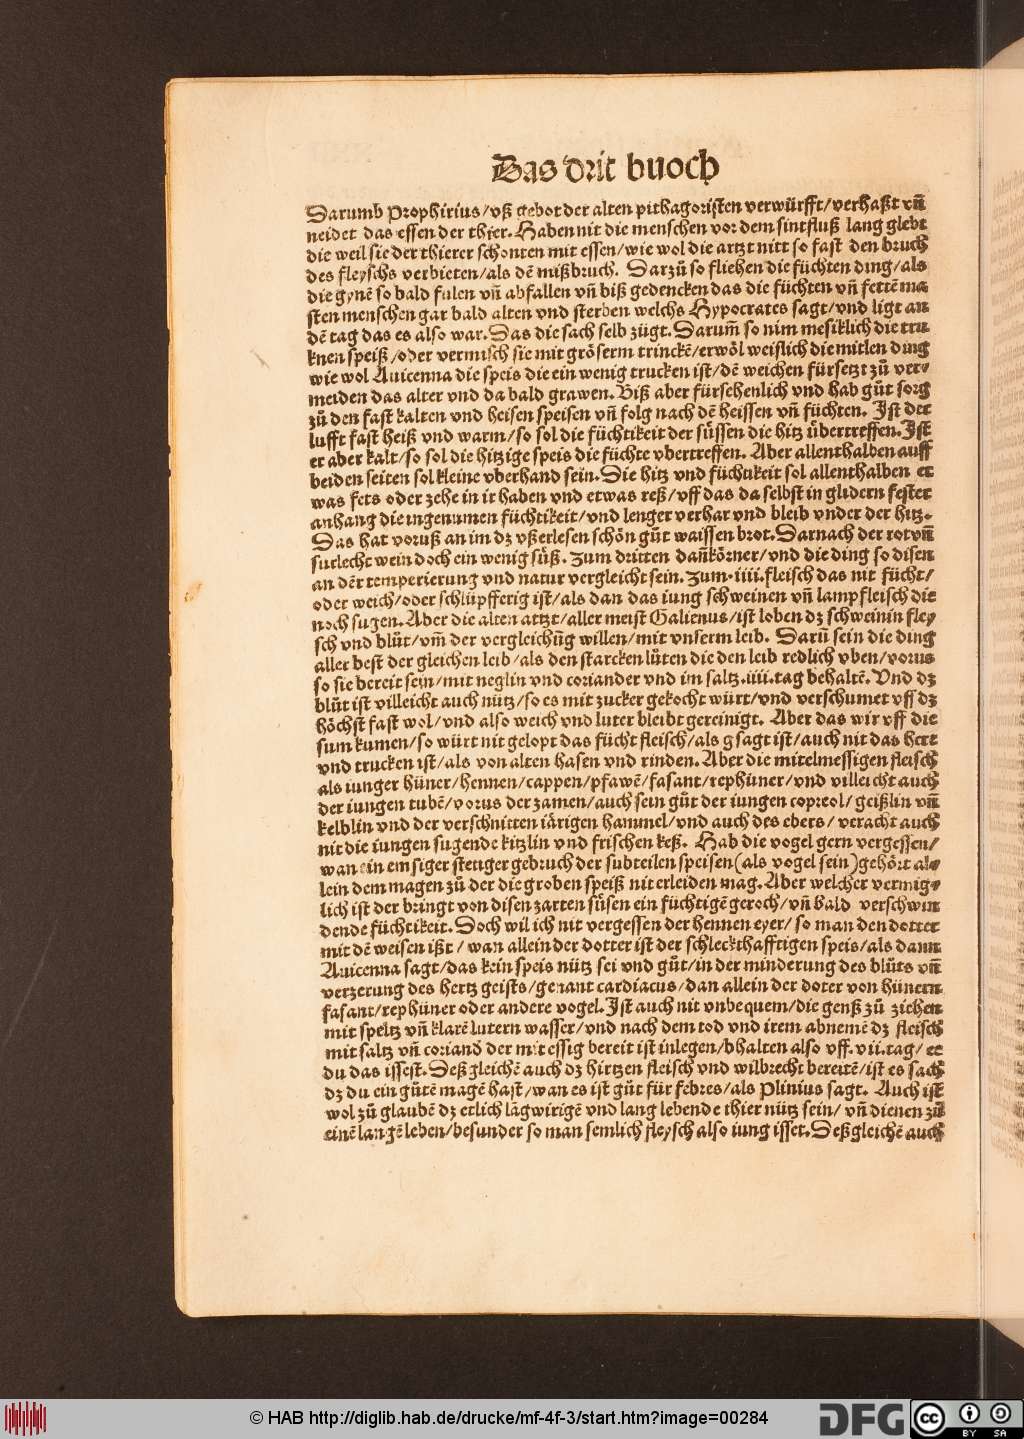 Das drit buoch
Darumb Prophirius/vß gebot der alten pithagoristen verwürfft/verhaßt vñ
neidet das essen der thier. Haben nit die menschen vor dem sintfluß lang glebt
die weil sie der thierer schonten mit essen/wie wol die artzt nitt so fast den bruch
des fleyschs verbieten/als dē mißbruch. Darzů so fliehen die füchten ding/als
die gynē so bald fulen vñ abfallen vñ biß gedencken das die füchten vñ fettē ma
sten menschen gar bald alten vnd sterben welchs Hypocrates sagt/vnd ligt an
dē tag das es also war. Das die sach selb zügt. Darum̄ so nim mesiklich die tru
knen speiß/oder vermisch sie mit grȫserm trinckē/erwȫl weißlich die mitlen ding
wie wol Auicenna die speis die ein wenig trucken ist/dē weichen fürsetzt zů ver⸗
meiden das alter vnd da bald grawen. Biß aber fürsehenlich vnd hab gůt sorg
zů den fast kalten vnd heisen speisen vñ folg nach dē heissen vñ füchten. Ist der
lufft fast heiß vnd warm/so sol die füchtikeit der süssen die hitz übertreffen. Ist
er aber kalt/so sol die hitzige speis die füchte vbertreffen. Aber allenthalben auff
beiden seiten sol kleine vberhand sein. Die hitz vnd füchtikeit sol allenthalben et
was fets oder zehe in ir haben vnd etwas reß/vff das da selbst in glidern fester
anhang die ingenumen füchtikeit/vnd lenger verhar vnd bleib vnder der hitz.
Das hat voruß an im dz vßerlesen schȫn gůt waissen brot. Darnach der rot vñ
surlecht wein doch ein wenig süß. Zum dritten dañkȫrner/vnd die ding so disen
an der temperierung vnd natur vergleicht sein. Zum .iiii. fleisch das nit fücht/
oder weich/oder schlüpfferig ist/als dan das iung schweinen vñ lampfleisch die
noch sugen. Aber die alten artzt/aller meist Galienus/ist loben dz schweinin fley
sch vnd blůt/vm̄ der vergleichūg willen/mit vnserm leib. Darū sein die ding
aller best der gleichen leib/als den starcken lüten die den leib redlich vben/vorus
so sie bereit sein/mit neglin vnd coriander vnd im saltz .iiii. tag behaltē. Vnd dz
blůt ist villeicht auch nütz/so es mit zucker gekocht würt/vnd verschumet vff dz
hȫchst fast wol/vnd also weich vnd luter bleibt gereinigt. Aber das wir vff die
sum kumen/so würt nit gelopt das fücht fleisch/als gsagt ist/auch nit das hert
vnd trucken ist/als von alten hasen vnd rinden. Aber die mitelmessigen fleisch
als iunger hüner/hennen/cappen/pfawē/fasant/rephüner/vnd villeicht auch
der iungen tubē/vorus der zamen/auch sein gůt der iungen copreol/geißlin vñ
kelblin vnd der verschnitten iärigen hammel/vnd auch des ebers/veracht auch
nit die iungen sugende kitzlin vnd frischen keß. Hab die vogel gern vergessen/
wan ein emsiger stettger gebruch der subteilen speisen(als vogel sein)gehȫrt al⸗
lein dem magen zů der die groben speiß nit erleiden mag. Aber welcher vermig⸗
lich ist der bringt von disen zarten süsen ein füchtigē geroch/vñ bald verschwin
dende füchtikeit. Doch wil ich nit vergessen der hennen eyer/so man den dotter
mit dē weisen ißt/wan allein der dotter ist der schleckthafftigen speis/als dann
Auicenna sagt/das kein speis nütz sei vnd gůt/in der minderung des blůts vñ
verzerung des hertz geists/genant cardiacus/dan allein der doter von hünern
fasant/rephüner oder andere vogel. Ist auch nit vnbequem/die genß zů ziehen
mit speltz vñ klarē lutern wasser/vnd nach dem tod vnd irem abnemē dz fleisch
mit saltz vñ coriand der mit essig bereit ist inlegen/bhalten also vff .vii. tag/ee
du das issest. Deß gleichē auch dz hirtzen fleisch vnd wilbrecht bereitē/ist es sach
dz du ein gůtē magē hast/wan es ist gůt für febres/als Plinius sagt. Auch ist
wol zů glaubē dz etlich lāgwirigē vnd lang lebende thier nütz sein/vñ dienen zů
einē langē leben/besunder so man semlich fleysch also iung isset. Deß gleichē auch
© HAB http://diglib.hab.de/drucke/mf-4f-3/start.htm?image=00284
DFG
cc BY SA